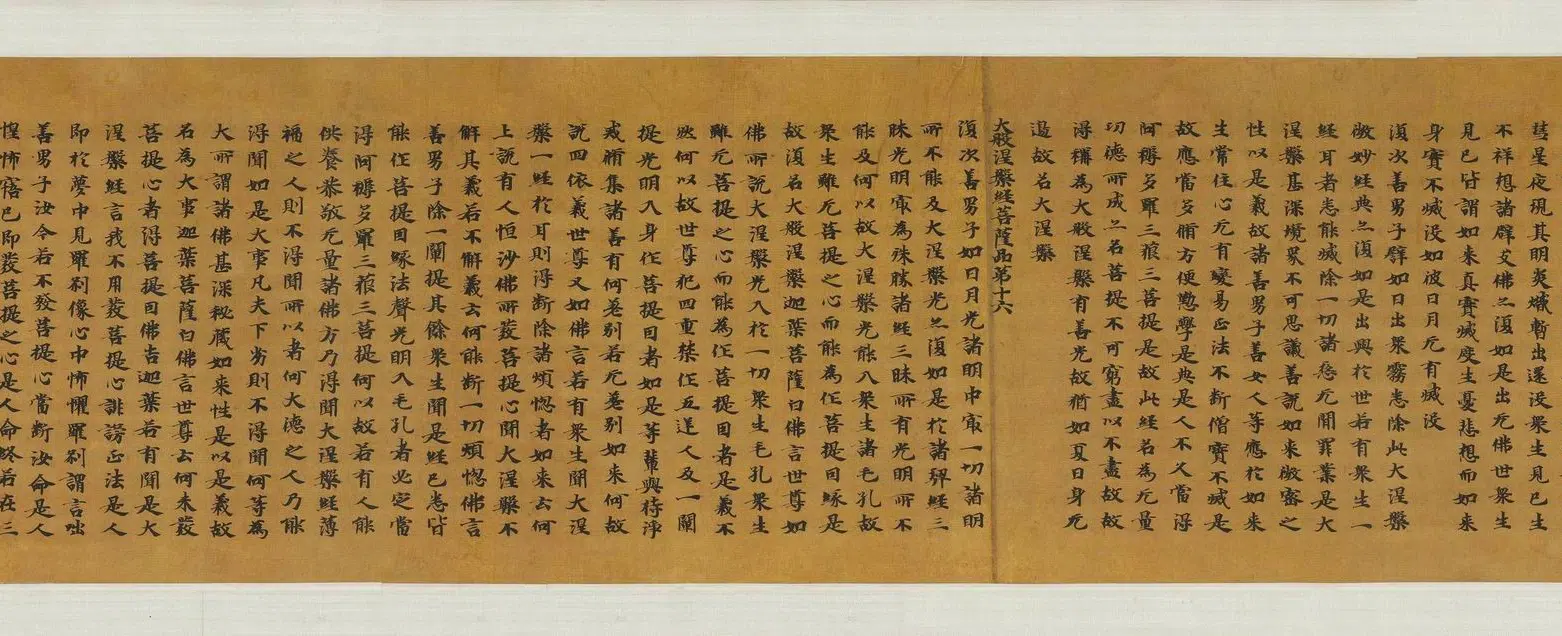 彗星夜現其明炎熾暫出還没衆生見已生
不祥想諸辟支佛亦復如是出无佛世衆生
見已皆謂如来真實滅度生憂悲想而如来
身實不滅没如彼日月无有滅没
復次善男子譬如日出衆霧悉除此大涅槃
微妙經典亦復如是出興於世若有衆生一
經耳者悉能滅除一切諸惡无間罪業是大
涅槃甚深境界不可思議善説如来微密之
性以是義故諸善男子善女人等應於如来
生常住心无有變易正法不断僧寶不滅是
故應當多脩方便懃學是典是人不久當得
阿耨多羅三藐三菩提是故此經名為无量
功德所成亦名菩提不可窮盡以不盡故故
得稱為大般涅槃有善光故猶如夏日身无
邊故名大涅槃
大般涅槃經菩薩品第十六
復次善男子如日月光諸明中冣一切諸明
所不能及大涅槃光亦復如是於諸契經三
昧光明冣為殊勝諸經三昧所有光明所不
能及何以故大涅槃光能入衆生諸毛孔故
衆生雖无菩提之心而能為作菩提因縁是
故復名大般涅槃迦葉菩薩白佛言世尊如
佛所説大涅槃光入於一切衆生毛孔衆生
雖无菩提之心而能為作菩提因者是義不
然何以故世尊犯四重禁作五逆人及一闡
提光明入身作菩提因者如是等輩與持淨
戒脩集諸善有何差別若无差別如来何故
説四依義世尊又如佛言若有衆生聞大涅
槃一經於耳則得断除諸煩惱者如来云何
上説有人恒沙佛所發菩提心聞大涅槃不
解其義若不解義云何能断一切煩惱佛言
善男子除一闡提其餘衆生聞是經已悉皆
能作菩提因縁法聲光明入毛孔者必定當
得阿耨多羅三藐三菩提何以故若有人能
供養恭敬无量諸佛方乃得聞大涅槃經薄
福之人則不得聞所以者何大德之人乃能
得聞如是大事凡夫下劣則不得聞何等為
大所謂諸佛甚深秘藏如来性是以是義故
名為大事迦葉菩薩白佛言世尊云何未發
菩提心者得菩提因佛告迦葉若有聞是大
涅槃經言我不用發菩提心誹謗正法是人
即於夢中見羅刹像心中怖懼羅刹謂言咄
善男子汝今若不發菩提心當断汝命是人
惶怖寤已即發菩提之心是人命終若在三